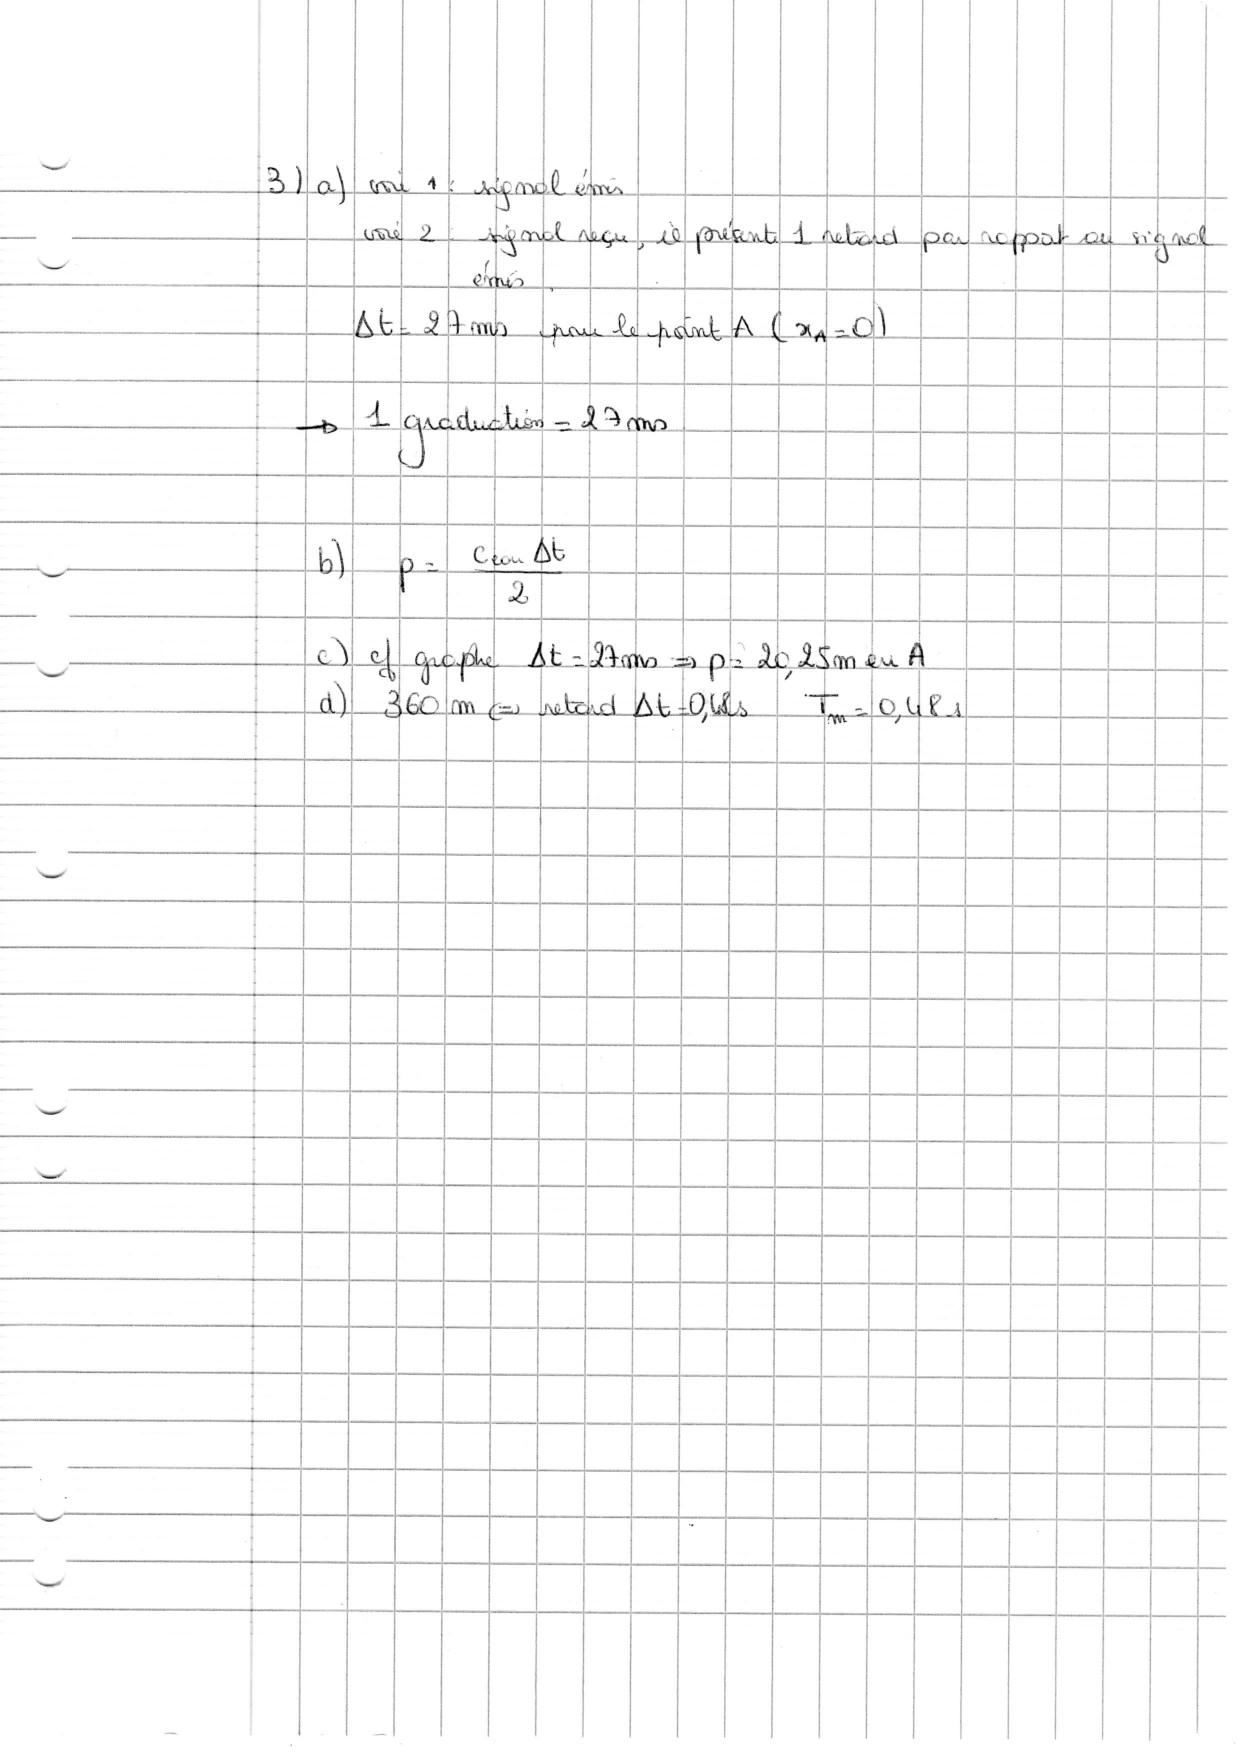 3) a) voie 1 : signal émis
voie 2 : signal reçu, il présente 1 retard par rapport au signal
émis.
Δt = 27 ms pour le point A (x_A = 0)
→ 1 graduction = 27 ms
b) p = c_eau Δt / 2
c) cf graphe Δt = 27 ms ⇒ p = 20,25 m en A
d) 360 m ⇔ retard Δt = 0,48 s T_m = 0,48 s